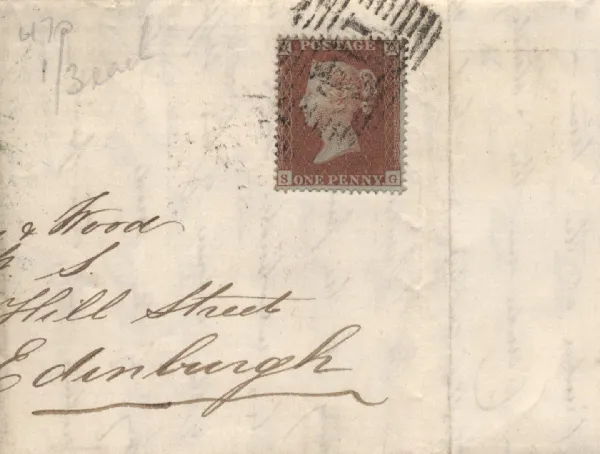 47p
1/3 each
POSTAGE
S ONE PENNY G
& Wood
S.
Hill Street
Edinburgh